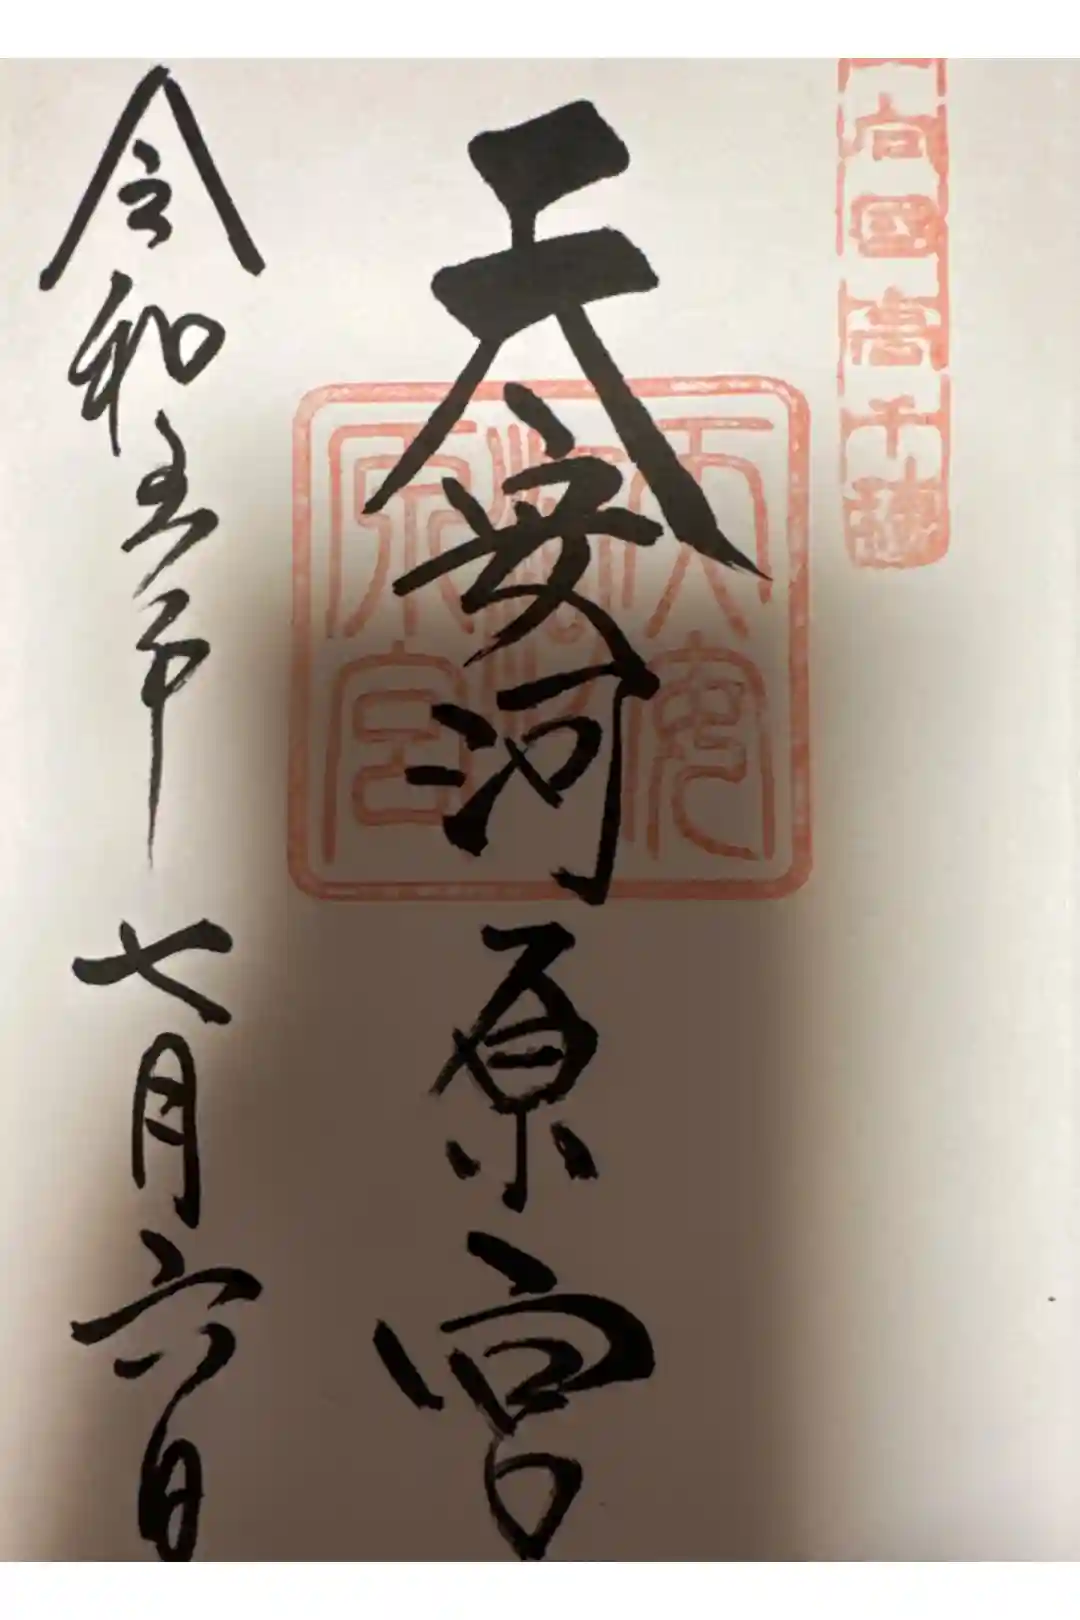 向國高千穂
天安河原宮
天安河原宮
令和五年 七月六日